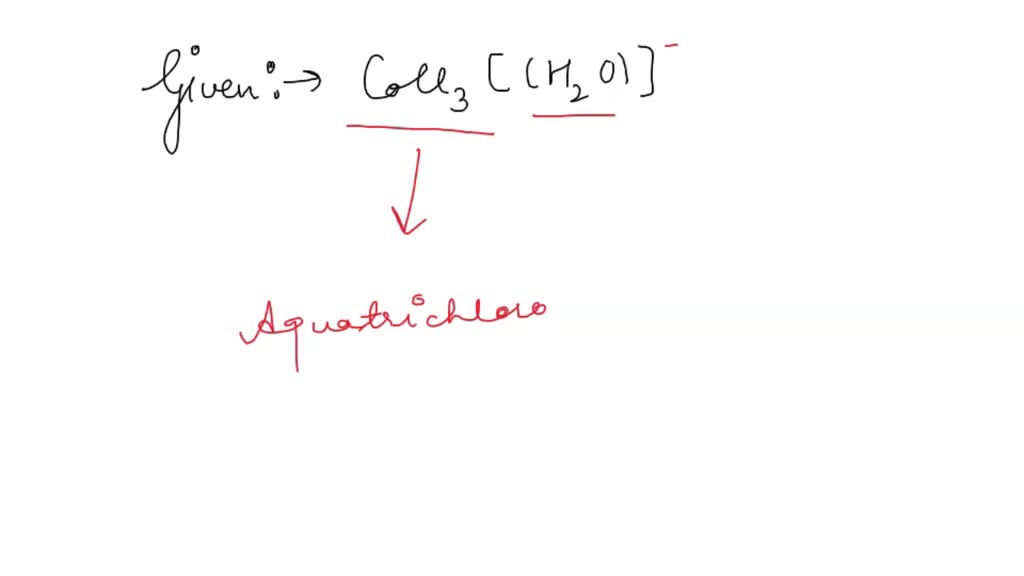 Given :→ CoCl₃ [(H₂O)]⁻
Aquatrichloro